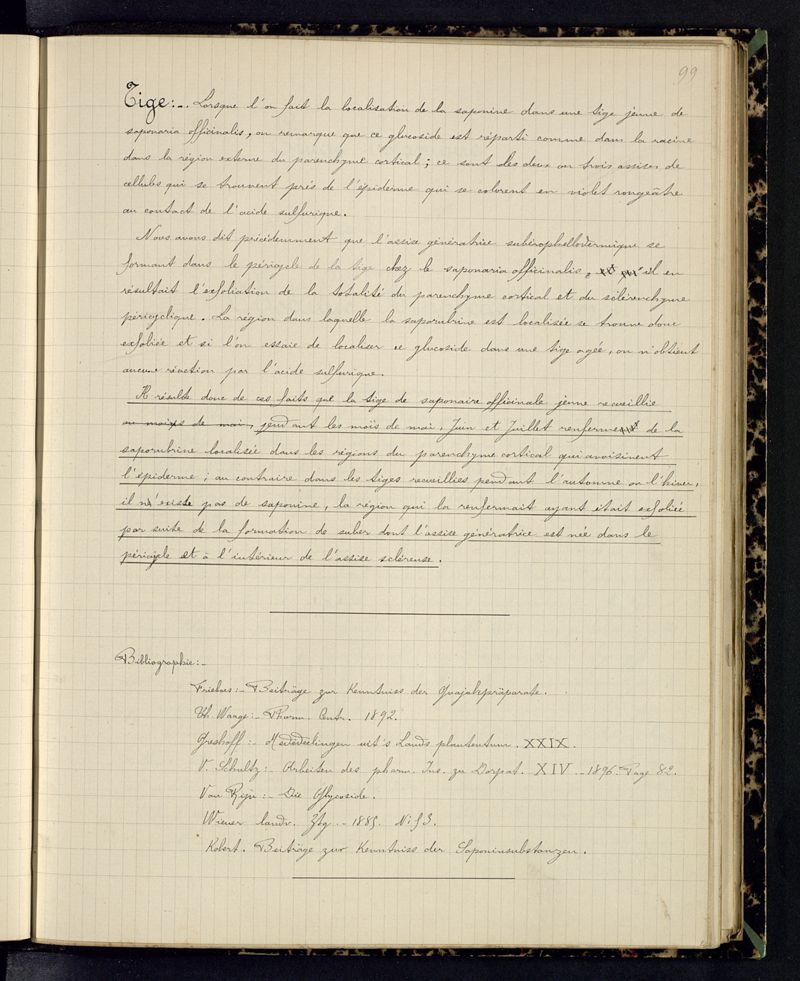 99
Tige:_. Lorsque l'on fait la localisation de la saponine dans une tige jeune de
saponaria officinalis, on remarque que ce glucoside est réparti comme dans la racine
dans la région externe du parenchyme cortical; ce sont les deux ou trois assises de
cellules qui se trouvent près de l'épiderme qui se colorent en violet rougeâtre
au contact de l'acide sulfurique.
Nous avons dit précédemment que l'assise génératrice subérophellodermique se
formant dans le péricycle de la tige chez le saponaria officinalis, il en
résultait l'exfoliation de la totalité du parenchyme cortical et du sclérenchyme
péricyclique. La région dans laquelle la saporubrine est localisée se trouve donc
exfoliée et si l'on essaie de localiser ce glucoside dans une tige agée, on n'obtient
aucune réaction par l'acide sulfurique.
Il résulte donc de ces faits que la tige de saponaire officinale jeune recueillie
au mois de mai, pendant les mois de mai, Juin et Juillet renferme de la
saporubrine localisée dans les régions du parenchyme cortical qui avoisinent
l'épiderme; au contraire dans les tiges recueillies pendant l'automne ou l'hiver,
il n'existe pas de saponine, la région qui la renfermait ayant était exfoliée
par suite de la formation de suber dont l'assise génératrice est née dans le
péricycle et à l'intérieur de l'assise scléreuse.
Bibliographie:_
Friebors:_ Beiträge zur Kenntniss der Guajakpräparate.
Waage:_ Pharm. Centr. 1892.
Greshoff:_ Mededeelingen uit's Lands plantentum. XXIX.
V. Schultz:_ Arbeiten des pharm. Ins. zu Dorpat. XIV _ 1896. Page 82.
Van Rijn:_ Die Glycoside.
Wiener landw. Ztg _ 1885. N: 93.
Kobert. Beiträge zur Kenntniss der Saponinsubstanzen.